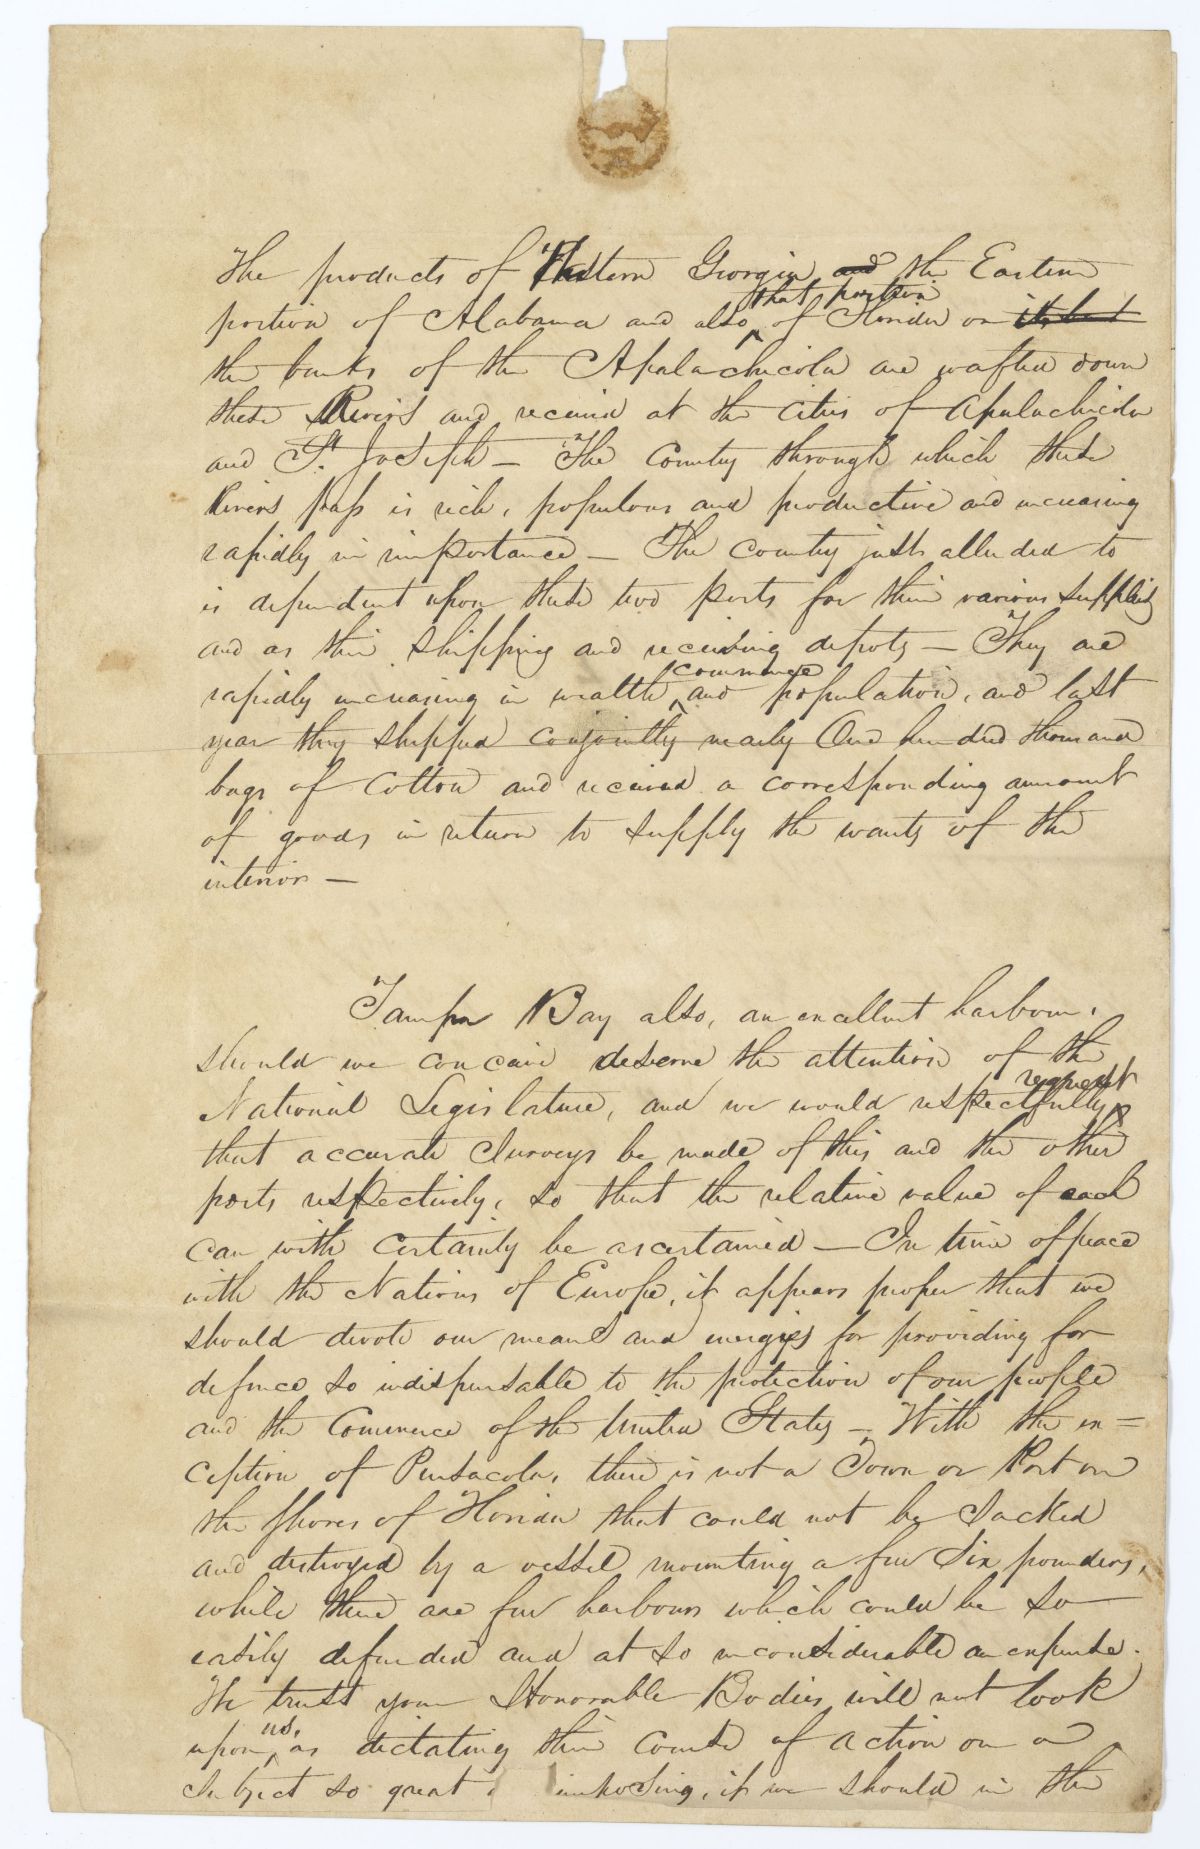 The products of Western Georgia and the Eastern
that portion
portion of Alabama and also ^ of Florida on its bank
the banks of the Apalachicola are wafted down
these Rivers and received at the cities of Apalachicola
and St. Joseph — The Country through which these
Rivers pass is rich, populous and productive and increasing
rapidly in importance — The country just alluded to
is dependent upon these two ports for their various supplies
and as their shipping and receiving depots — They are
commerce
rapidly increasing in wealth ^ and population, and last
year they shipped conjointly nearly One hundred thousand
bags of Cotton and received a corresponding amount
of goods in return to supply the wants of the
interior —
Tampa Bay also, an excellent harbour,
should we concieve deserve the attention of the
request
National Legislature, and we would respectfully ^
that accurate Surveys be made of this and the other
ports respectively, so that the relative value of each
can with certainty be ascertained — In time of peace
with the Nations of Europe, it appears proper that we
should devote our means and energies for providing for
defence so indispensable to the protection of our people
and the Commerce of the United States — With the ex=
ception of Pensacola, there is not a Town or Port on
the Shores of Florida that could not be Sacked
and destroyed by a vessel mounting a few Six pounders,
while there are few harbours which could be so
easily defended and at so inconsiderable an expense.
We trust your Honorable Bodies will not look
us,
upon ^ as dictating their Course of action on a
Subject so great imposing, if we should in the